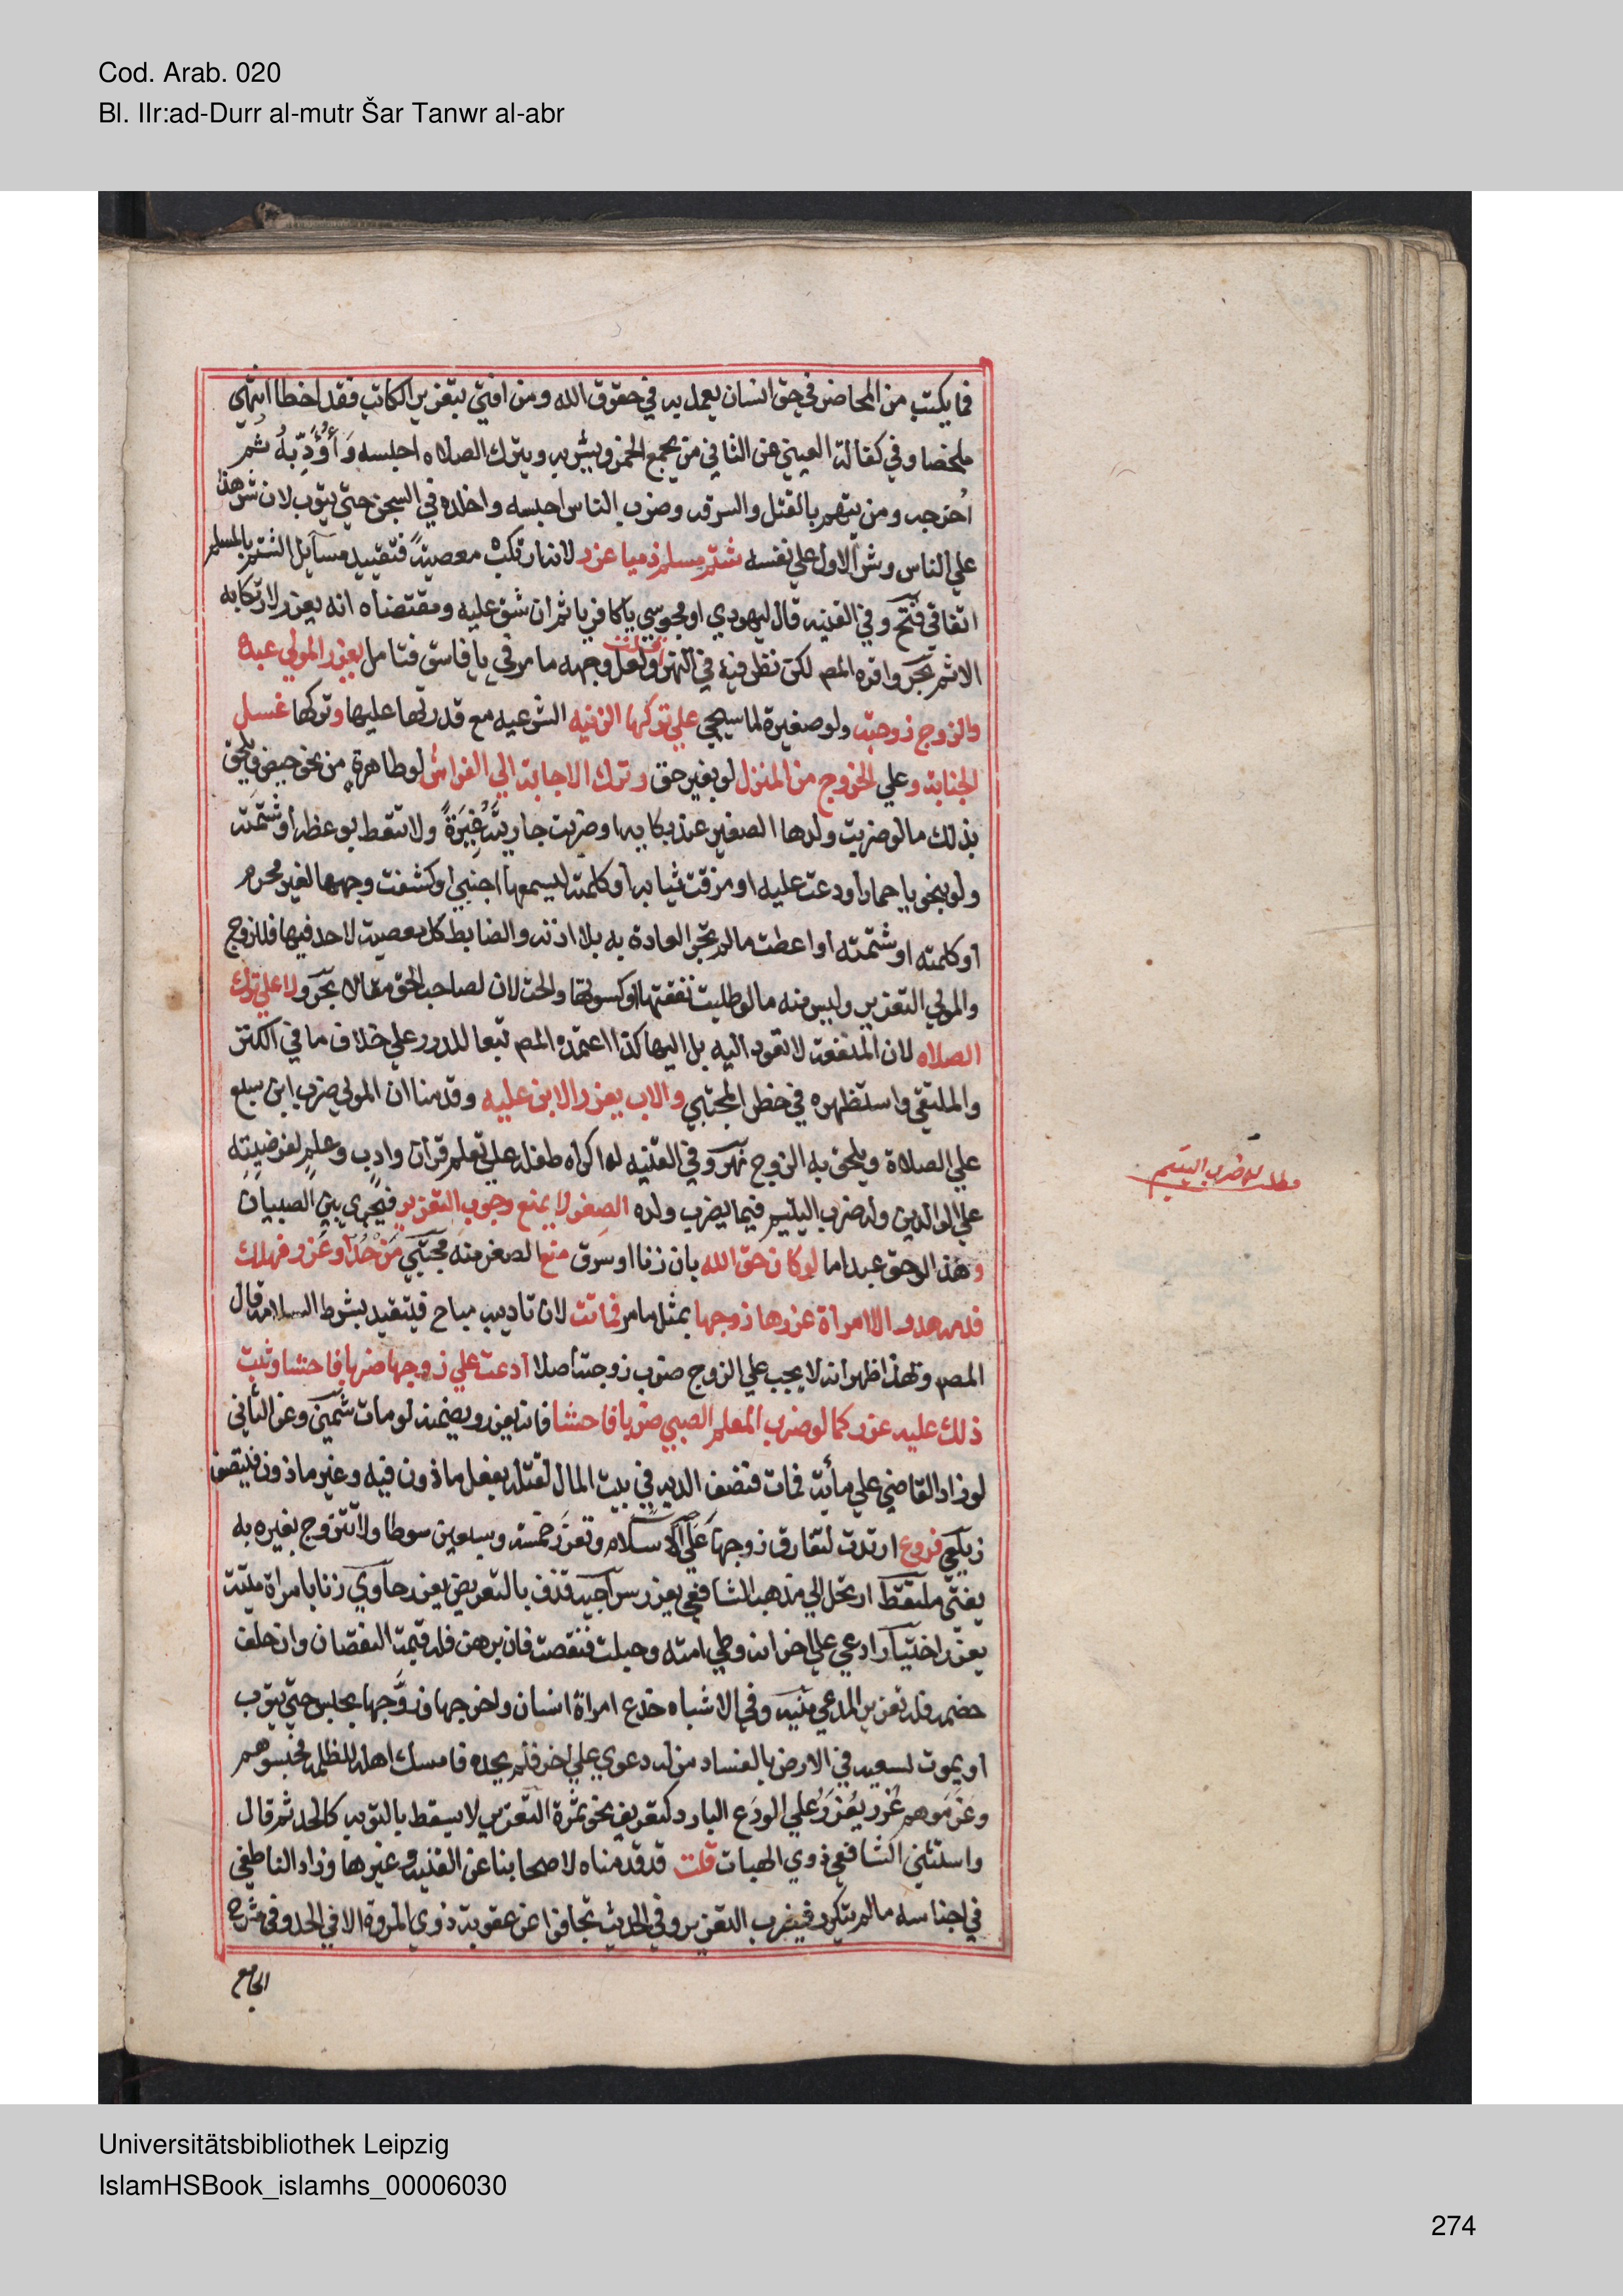 Cod. Arab. 020
Bl. IIr:ad-Durr al-mutr Šar Tanwr al-abr
فما يكتب من المحاضر في حق انسان يعمل به في حقوق الله ومن افتي بتعزير الكاتب فقد اخطا انتهي
ملخصا وفي كفالة العيني عن الثاني من يجمع الخمر ويشربه ويترك الصلاه احبسه وَأُؤَدِّبهُ ثم
اُخرجه ومن يتهم بالقتل والسرقه وضرب الناس احبسه واخلده في السجن حتي يتوب لان شر هذا
علي الناس وشر الاول علي نفسه شتم مسلم ذميا عزر لانه ارتكب معصية فتقييد مسايل الشتم بالمسلم
اتفاقي فتح وفي القنيه قال ليهودي او مجوسي ياكافر ياثم ان شق عليه ومقتضاه انه يعزر لارتكابه
الاثم بحر واقره المص لكن نظر فيه في النهر قلت ولعل وجهه ما مر في يا فاسق فتامل يعزر المولي عبده
والزوج زوجته ولو صغيرة لما سيجي علي تركها الزينه الشرعيه مع قدرتها عليها وتركها غسل
الجنابة وعلي الخروج من المنزل لو بغير حق وترك الاجابة الي الفراش لو طاهرة من نحو حيض ويلحق
بذلك ما لو ضربت ولدها الصغير عند بكايه او ضربت جاريته غِيرَةً ولا تتعظ بوعظه او شتمته
ولو بنحو يا حمار او دعت عليه او مزقت ثيابه او كلمته ليسمعها اجنبي او كشفت وجهها لغير محرم
او كلمته او شتمته او اعطت ما لم تجر العادة به بلا اذنه والضابط كل معصية لا حد فيها فللزوج
والمولي التعزير وليس منه ما لو طلبت نفقتها او كسوتها والحت لان لصاحب الحق مقالا بحر ولا علي ترك
الصلاه لان المنفعة لا تعود اليه بل اليها كذا اعتمده المص تبعا للدرر علي خلاف ما في الكنز
والملتقي واستظهره في حظر المجتبي والاب يعزر الابن عليه وقدمنا ان المولي ضرب ابن سبع
علي الصلاة ويلحق به الزوج نهر وفي القنيه له اكراه طفله علي تعلم قران وادب وعلم لفرضيته
علي الوالدين وله ضرب اليتيم فيما يضرب ولده الصغر لا يمنع وجوب التعزير فيجري بين الصبيان
وهذا لو حق عبد اما لو كان حق الله بان زنا او سرق منع الصغر منه مجتبي من حُدَّ او عزر فهلك
فدمه هدر الا امراة عزرها زوجها بمثل ما مر فماتت لان تاديبه مباح فيتقيد بشرط السلامه قال
المص وبهذا ظهر انه لا يجب علي الزوج ضرب زوجته اصلا ادعت علي زوجها ضربا فاحشا وثبت
ذلك عليه عزر كما لو ضرب المعلم الصبي ضربا فاحشا فانه يعزر ويضمنه لو مات شمني وعن الثاني
لو زاد القاضي علي مأية فمات فنصف الديه في بيت المال لقتله بفعل ماذون فيه وغير ماذون فيتنصف
زيلعي فروع ارتدت لتفارق زوجها تجبر علي الاسلام وتعزر خمسة وسبعين سوطا ولا تتزوج بغيره به
يفتي ملتقط ارتحل الي مذهب الشافعي يعزر سراجيه قذف بالتعريض يعزر حاوي زنا بامراة ميتة
يعزر اختيار ادعي علي اخر انه وطي امته وحبلت فنقصت فان برهن فله قيمة النقصان وان حلف
خصمه فله تعزير المدعي منيه وفي الاشباه خدع امراة انسان واخرجها وزوَّجها يحبس حتي يتوب
او يموت لسعيه في الارض بالفساد من له دعوي علي اخر فلم يجده فامسك اهله للظلمه فحبسوهم
وغرموهم عُزر يُعزر علي الورع البارد كتعريف نحو تمرة التعزير لا يسقط بالتوبه كالحد ثم قال
واستثني الشافعي ذوي الهيات قلت قد قدمناه لاصحابنا عن القنيه وغيرها وزاد الناطفي
في اجناسه ما لم يتكرر فيضرب التعزير وفي الحديث تجافوا عن عقوبة ذوي المروة الا في الحد وفي شرح
الجامع
مطلب له ضرب اليتيم
Universitätsbibliothek Leipzig
IslamHSBook_islamhs_00006030
274